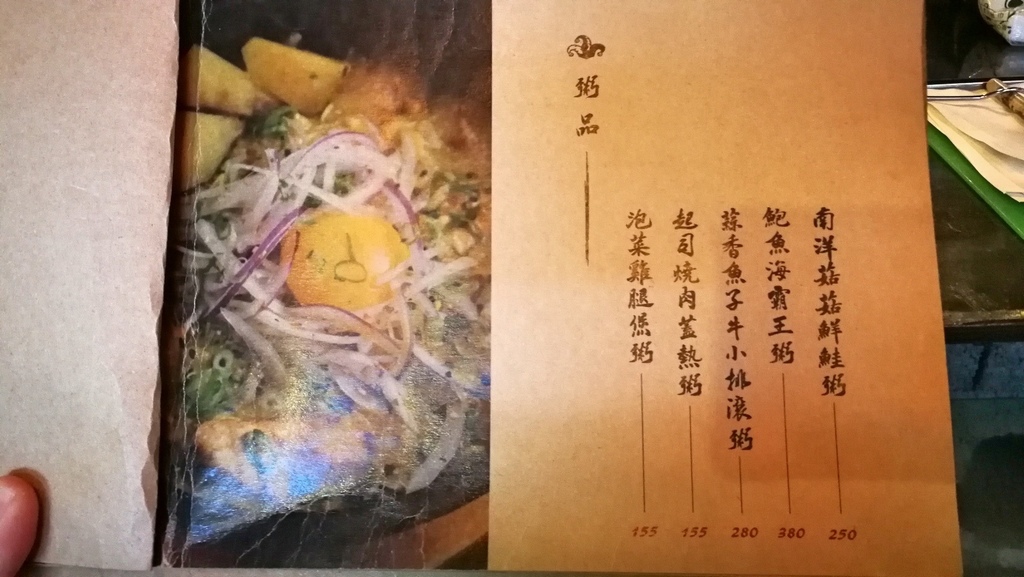 粥品
泡菜雞腿煲粥
155
起司燒肉蓋熱粥
155
蒜香魚子牛小排滾粥
280
鮑魚海霸王粥
380
南洋菇菇鮮鮭粥
250